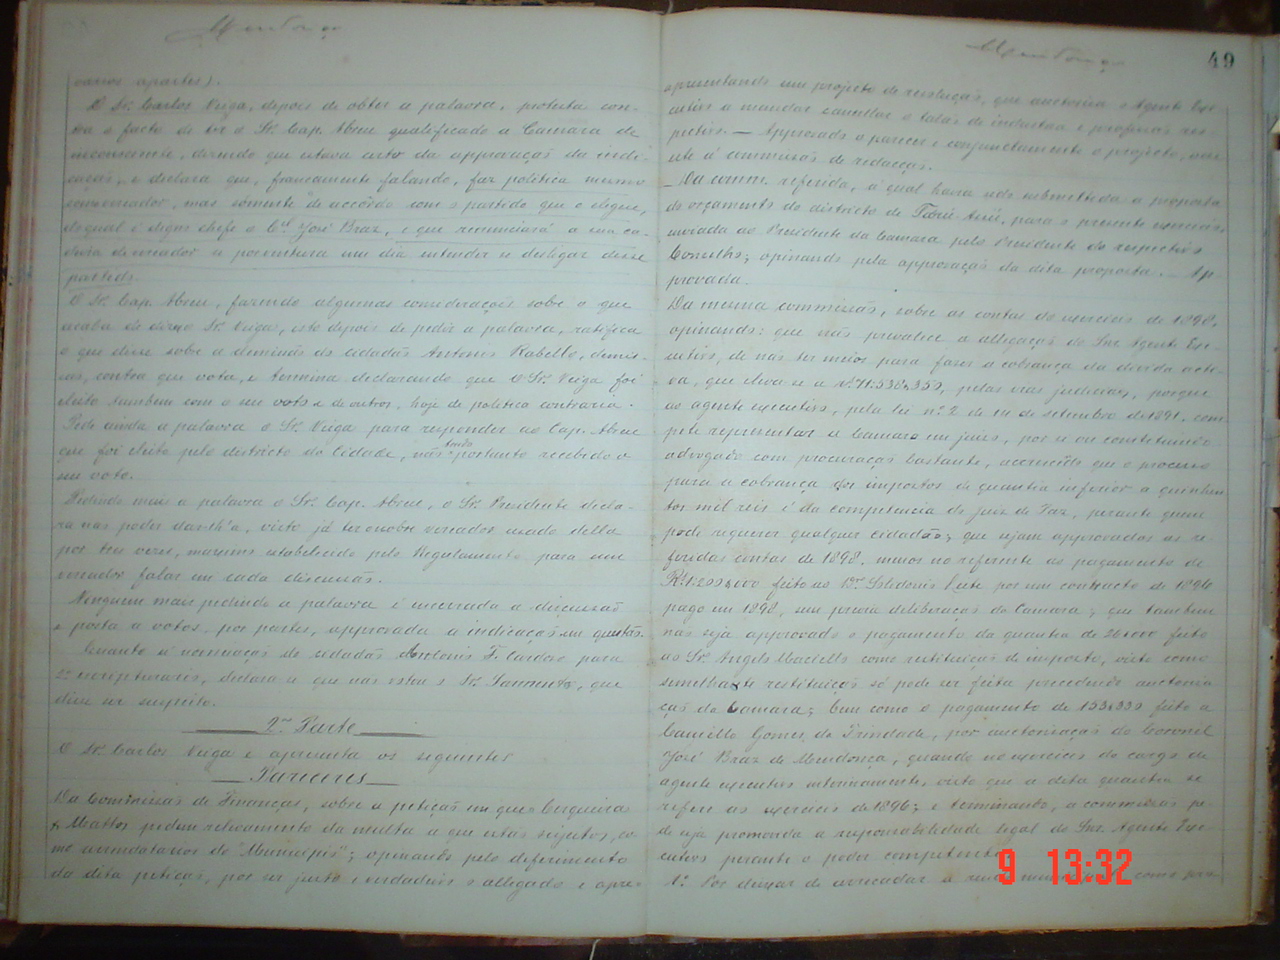 Mendonça
varios apartes).
O Sr. Carlos Veiga, depois de obter a palavra, protesta con-
tra o facto de ter o Sr. Cap. Abreu qualificado a Camara de
inconsciente, dizendo que estava certo da approvação da indi-
cação, e declara que, francamente falando, faz politica mesmo
como vereador, mas sómente de accôrdo com o partido que o elegeu,
do qual é digno chefe o Cel. José Braz, e que renunciará a sua ca-
deira de vereador se porventura um dia entender se desligar desse
partido.
O Sr. Cap. Abreu, fazendo algumas considerações sobre o que
acaba de dizer o Sr. Veiga, isto depois de pedir a palavra, ratifica
o que disse sobre a demissão do cidadão Antonio Rabello, demis-
são, contra que vota, e termina declarando que o Sr. Veiga foi
eleito tambem com o seu voto e de outros, hoje de politica contraria.
Pede ainda a palavra o Sr. Veiga para responder ao Cap. Abreu
que foi eleito pelo districto da Cidade, não tendo portanto recebido o
seu voto.
Pedindo mais a palavra o Sr. Cap. Abreu, o Sr. Presidente decla-
ra não poder dar-lh'a, visto já ter o nobre vereador usado della
por tres vezes, maximo estabelecido pelo Regulamento para um
vereador falar em cada discussão.
Ninguem mais pedindo a palavra é encerrada a discussão
e posta a votos, por partes, approvada a indicação em questão.
Quanto á nomeação do cidadão Antonio F. Cardoso para
2º escripturario, declara-se que não votou o Sr. Sarmento, que
disse ser suspeito.
2ª Parte
O Sr. Carlos Veiga apresenta os seguintes
Pareceres
Da Commissão de Finanças, sobre a petição em que Cerqueira
& Mattos pedem relevamento da multa a que estão sujeitos, co-
mo arrendatarios do "Municipio"; opinando pelo deferimento
da dita petição, por ser justo e verdadeiro o allegado e apre-
Mendonça
49
apresentando um projecto de resolução, que auctorisa o Agente Exe-
cutivo a mandar cancellar o talão de industria e profissão res-
pectivo. — Approvado o parecer e conjunctamente o projecto,
á commissão de redacção.
Da comm. referida, á qual havia sido submettida a proposta
do orçamento do districto de para o presente exercicio
enviada ao Presidente da Camara pelo Presidente do respectivo
Conselho; opinando pela approvação da dita proposta. — Ap-
provada.
Da mesma commissão, sobre as contas do exercicio de 1898,
opinando: que não prevalece a allegação do Snr. Agente Exe-
cutivo, de não ter meios para fazer a cobrança da divida acti-
va, que eleva-se a pelas vias judiciaes, porque
ao agente executivo, pela lei nº 2 de 14 de setembro de 1891, com-
pete representar a Camara em juizo, por si ou constituindo
advogado com procuração bastante, accrescido que o processo
para a cobrança dos impostos de quantia inferior a quinhen-
tos mil reis é da competencia do juiz de Paz, perante quem
pode requerer qualquer cidadão; que sejam approvadas as re-
feridas contas de 1898, menos no referente ao pagamento de
feito ao Dr. Leite por um contracto de 1896
pago em 1898, sem previa deliberação da Camara; que tambem
não seja approvado o pagamento da quantia de 26$000 feito
ao Sr. Angelo como restituição de imposto, visto como
semelhante restituição só pode ser feita precedendo auctorisa-
ção da Camara; bem como o pagamento de feito a
Camillo Gomes da Trindade, por auctorisação do Coronel
José Braz de Mendonça, quando no exercicio do cargo de
agente executivo interinamente, visto que a dita quantia se
refere ao exercicio de 1896; e terminando, a commissão pe-
de seja promovida a responsabilidade legal do Snr. Agente Exe-
cutivo perante o poder competente
1º Por deixar de arrecadar a como
9 13:32